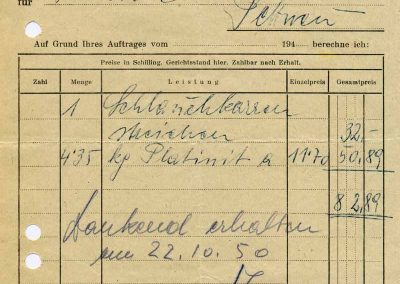 für
Auf Grund Ihres Auftrages vom 194 berechne ich:
Preise in Schilling. Gerichtsstand hier. Zahlbar nach Erhalt.
Zahl Menge Leistung Einzelpreis Gesamtpreis
1 Schlauchkarren
streichen 32,-
4'35 kg Platinit a 11'70 50,89
82,89
Dankend erhalten
am 22.10.50